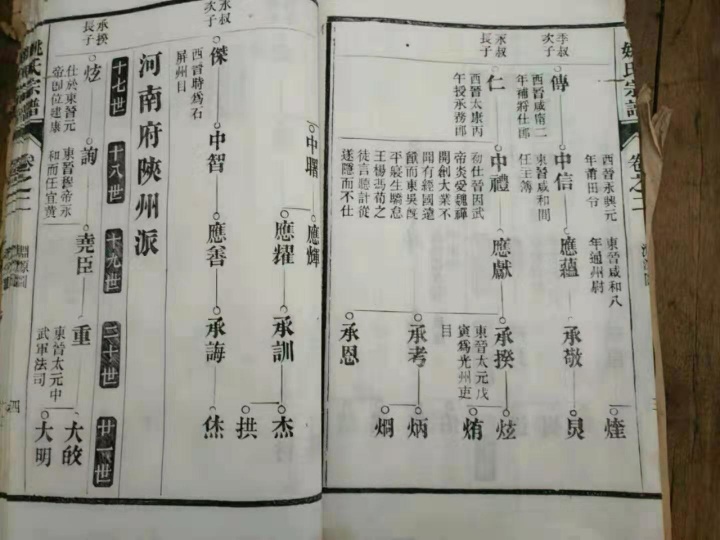 姚氏宗譜
卷之二
李叔
次子
傳
西晉咸甯二
年補將仕郎
中信
東晉咸和間
任主簿
西晉永興元
年莆田令
應蘊
東晉咸和八
年通州尉
承敬
煃
炅
永叔
長子
仁
西晉太康丙
年授承務郎
中禮
初仕晉因武
帝炎受魏禪
開創大業不
聞有經國遠
猷而東吳既
平寢生驕怠
王楊馮荀之
徒言聽計從
遂隱而不仕
應獻
承揆
東晉太元戊
寅爲光州吏
目
炫
烠
承考
炳
烱
承恩
永叔
次子
傑
西晉時爲石
屏州目
中曙
應輝
應耀
承訓
杰
拱
中智
應善
承誨
烋
河南府陝州派
十七世
十八世
十九世
二十世
廿一世
承揆
長子
炫
仕於東晉元
帝卽位建康
詢
東晉穆帝永
和而任宜黃
堯臣
重
東晉太元中
武軍法司
大皎
大明
姚氏宗譜
卷之二
淵源圖
四